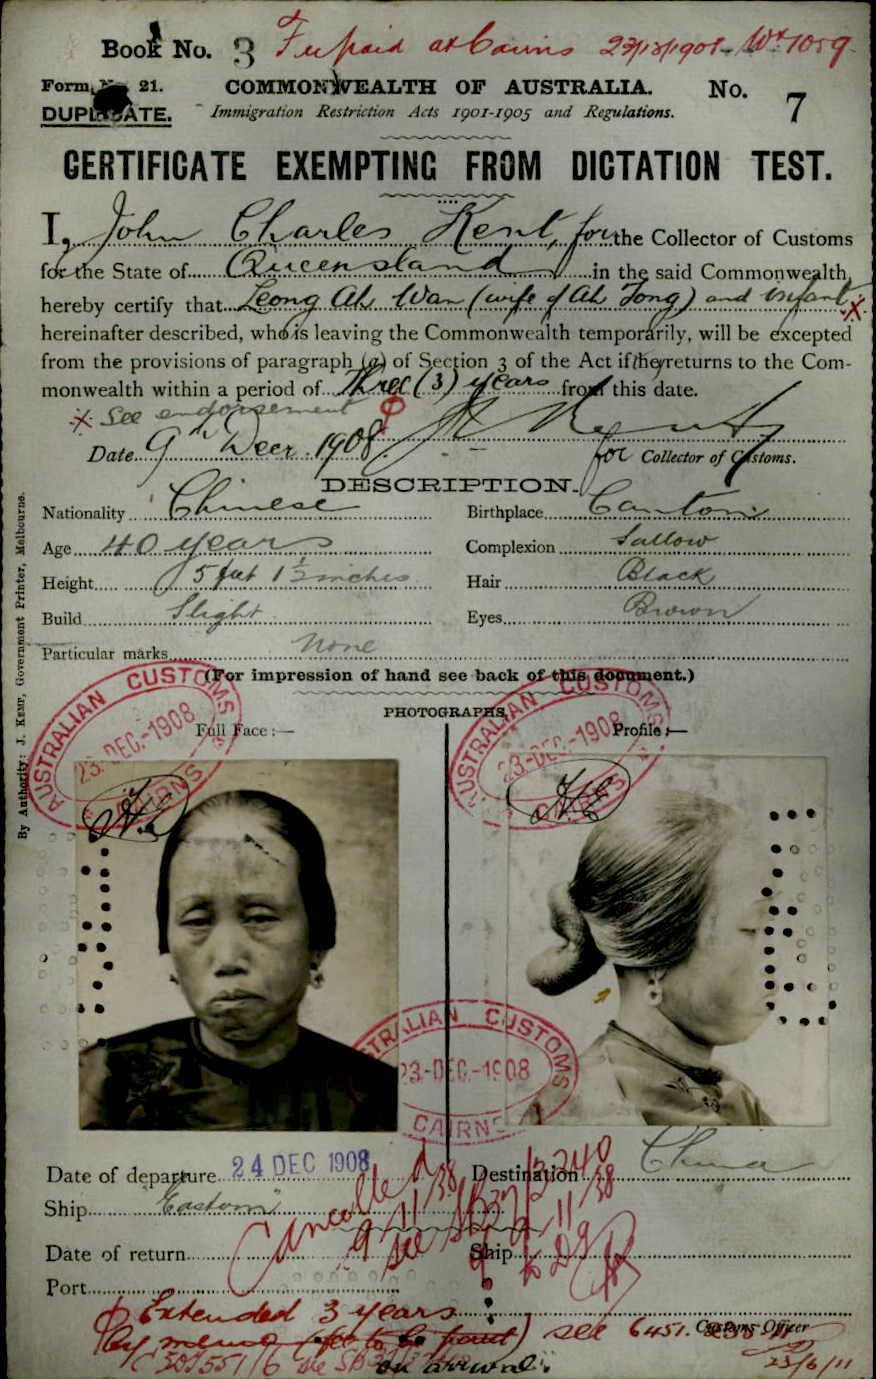 Book No. 3 Fee paid at Cairns 23/12/1908
Form No 21. COMMONWEALTH OF AUSTRALIA. No. 7
DUPLICATE. Immigration Restriction Acts 1901-1905 and Regulations.
CERTIFICATE EXEMPTING FROM DICTATION TEST.
I, John Charles Kent, for the Collector of Customs
for the State of Queensland in the said Commonwealth,
hereby certify that Leong Ah Wan (wife of Ah Tong) and infant X
hereinafter described, who is leaving the Commonwealth temporarily, will be excepted
from the provisions of paragraph (a) of Section 3 of the Act if she returns to the Com-
monwealth within a period of three (3) years from this date.
X See endorsement
Date 9th Decr. 1908 for Collector of Customs.
DESCRIPTION.
Nationality Chinese Birthplace Canton
Age 40 years Complexion Sallow
Height 5 feet 1 ½ inches Hair Black
Build Slight Eyes Brown
Particular marks None
(For impression of hand see back of this document.)
PHOTOGRAPHS.
Full Face :— Profile :—
AUSTRALIAN CUSTOMS
23-DEC.-1908
CAIRNS
AUSTRALIAN CUSTOMS
23-DEC.-1908
CAIRNS
AUSTRALIAN CUSTOMS
23-DEC.-1908
CAIRNS
Date of departure 24 DEC 1908 Destination China
Ship Eastern
Cancelled
9/11/38
Date of return Ship
Port
ϕ Extended 3 years
by memo (fee to be paid) see
on arrival.
Customs Officer
23/6/11
By Authority: J. KEMP, Government Printer, Melbourne.